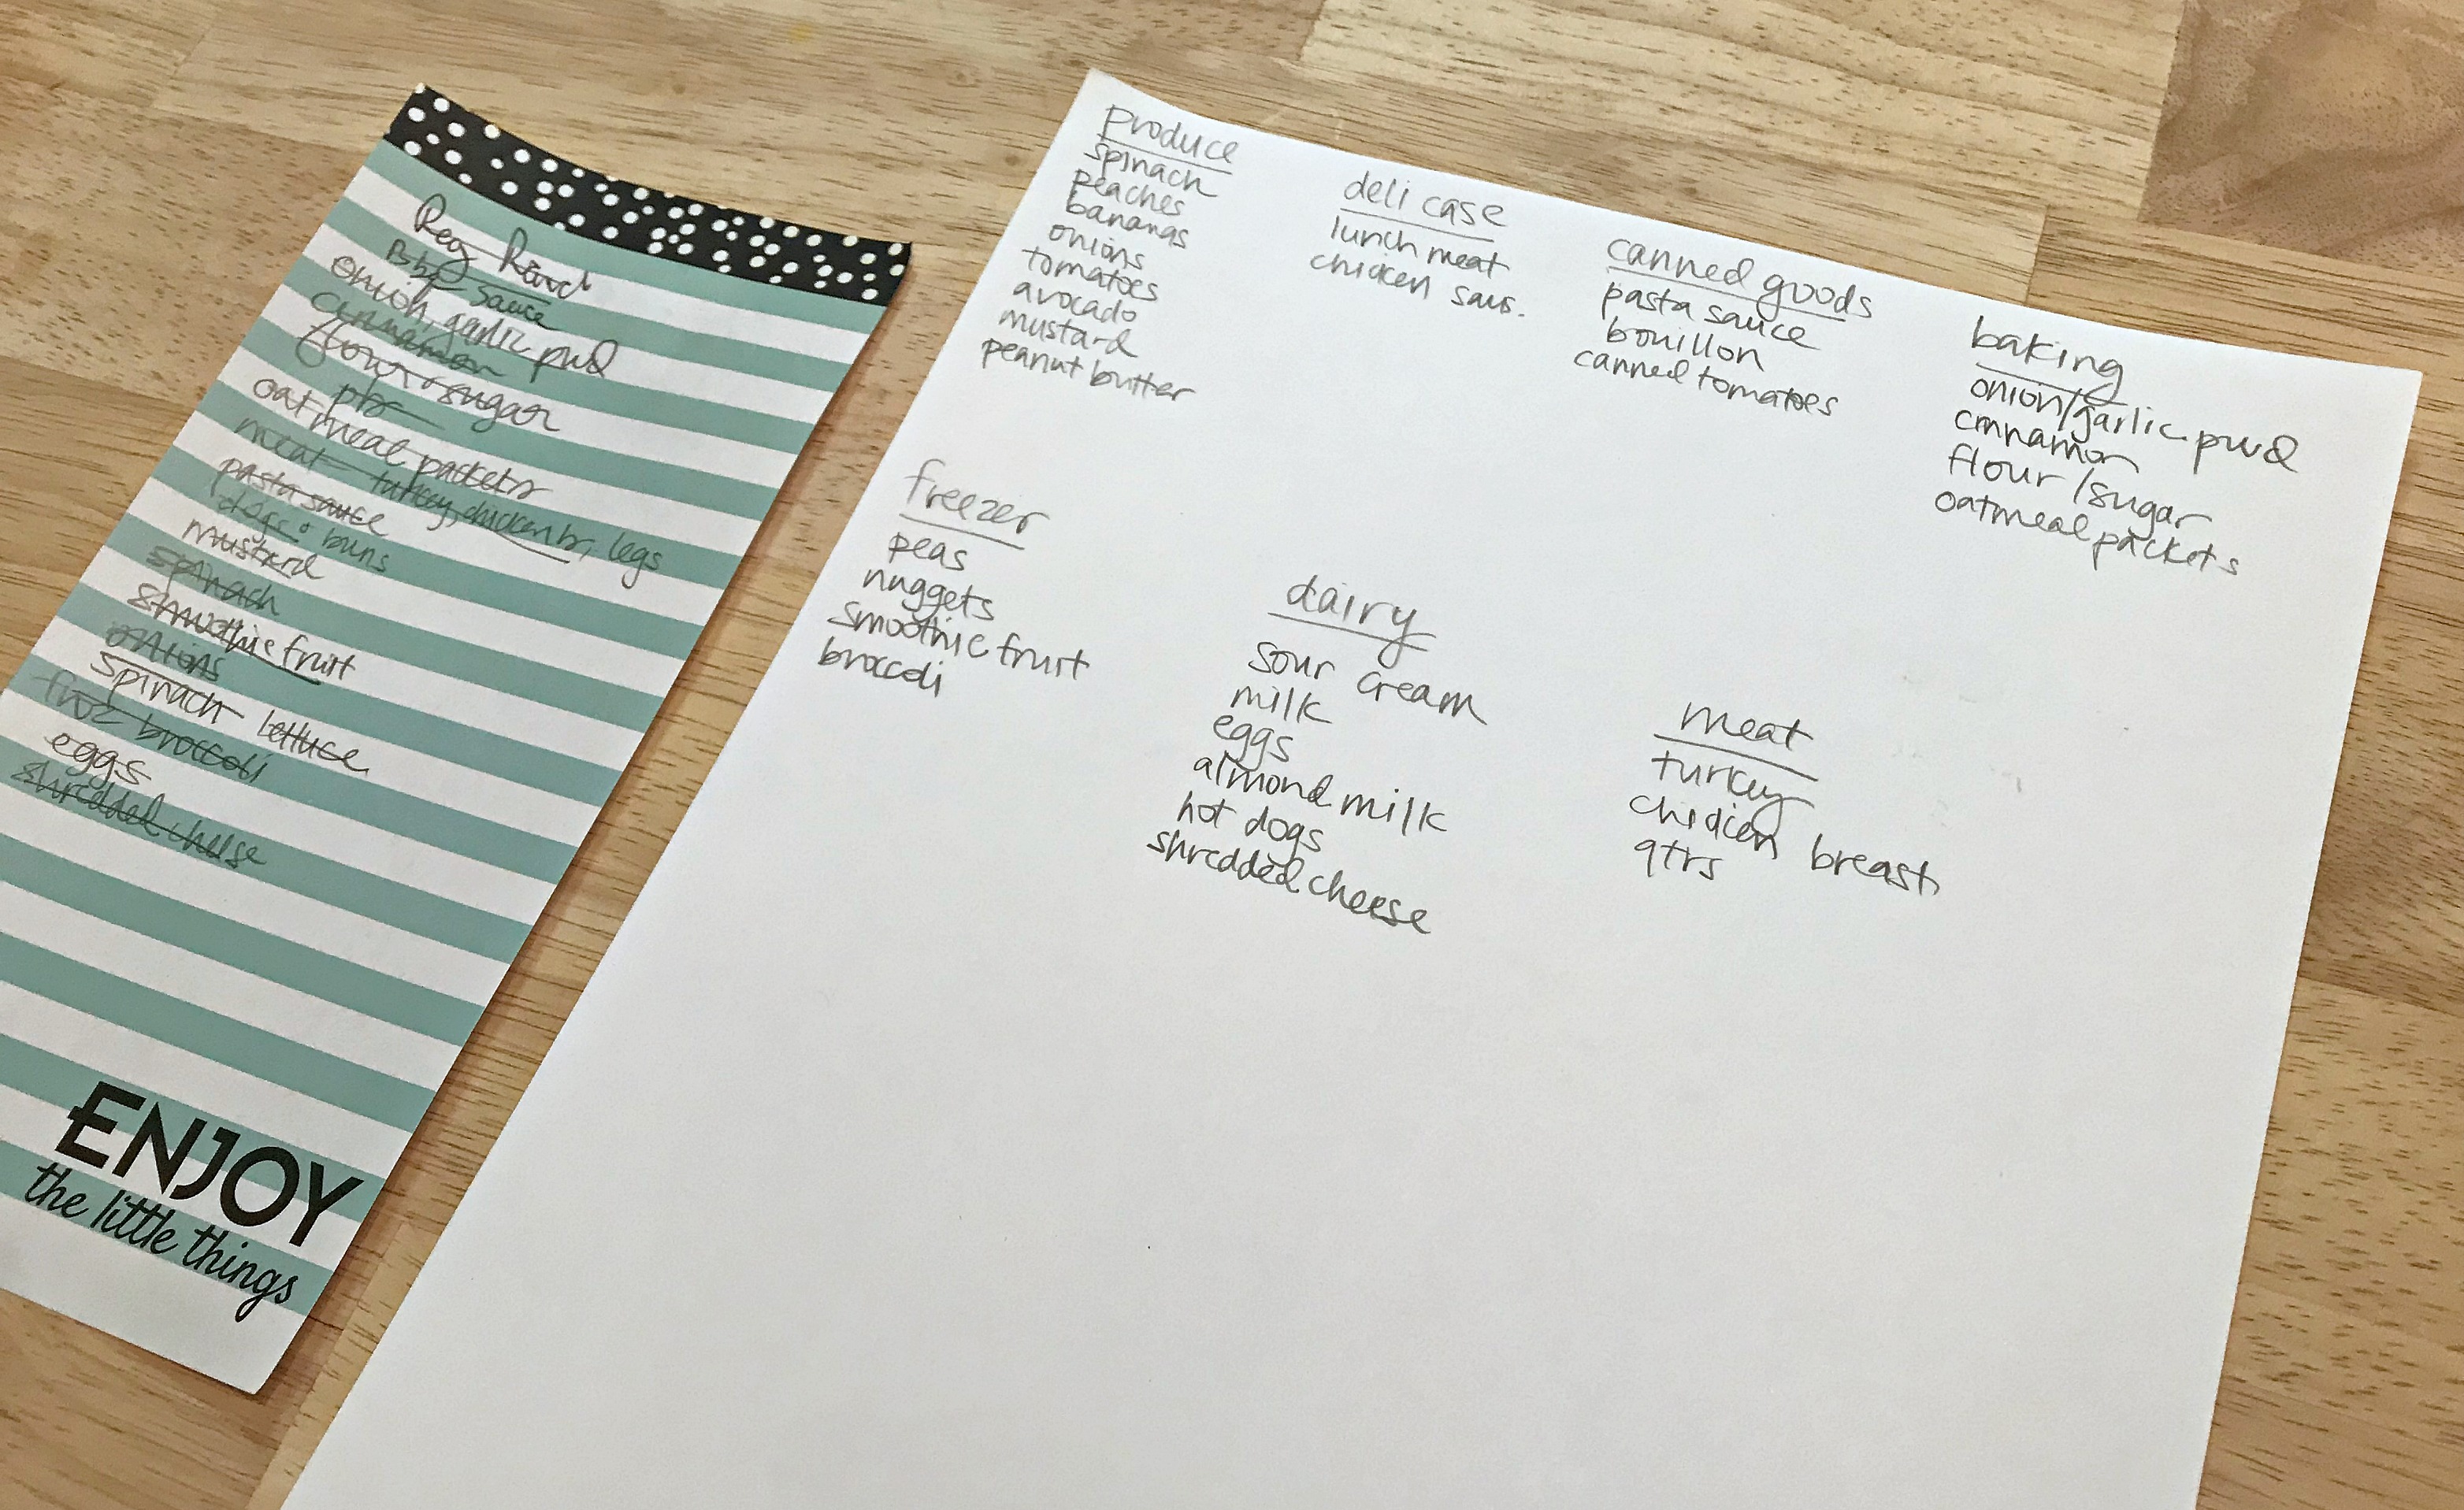 Reg Ranch
Bbq sauce
onion, garlic pwd
cinnamon
flour + sugar
pb
oatmeal packets
meat - turkey, chicken br, legs
pasta sauce
dogs + buns
mustard
spinach
smoothie fruit
onions
spinach lettuce
froz broccoli
eggs
shredded cheese
ENJOY
the little things
produce
spinach
peaches
bananas
onions
tomatoes
avocado
mustard
peanut butter
deli case
lunch meat
chicken saus.
canned goods
pasta sauce
bouillon
canned tomatoes
baking
onion/garlic pwd
cinnamon
flour/sugar
oatmeal packets
freezer
peas
nuggets
smoothie fruit
broccoli
dairy
sour cream
milk
eggs
almond milk
hot dogs
shredded cheese
meat
turkey
chicken breast
qtrs